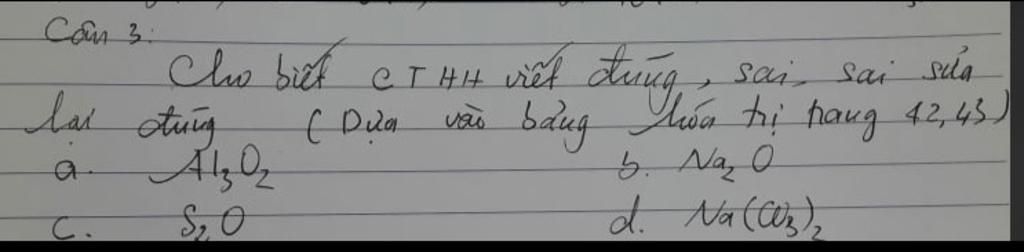 Câu 3:
Cho biết CTHH viết đúng, sai, sai sửa
lại đúng (Dựa vào bảng hóa trị trang 42,43)
a. Al₃O₂ b. Na₂O
c. S₂O d. Na(CO₃)₂